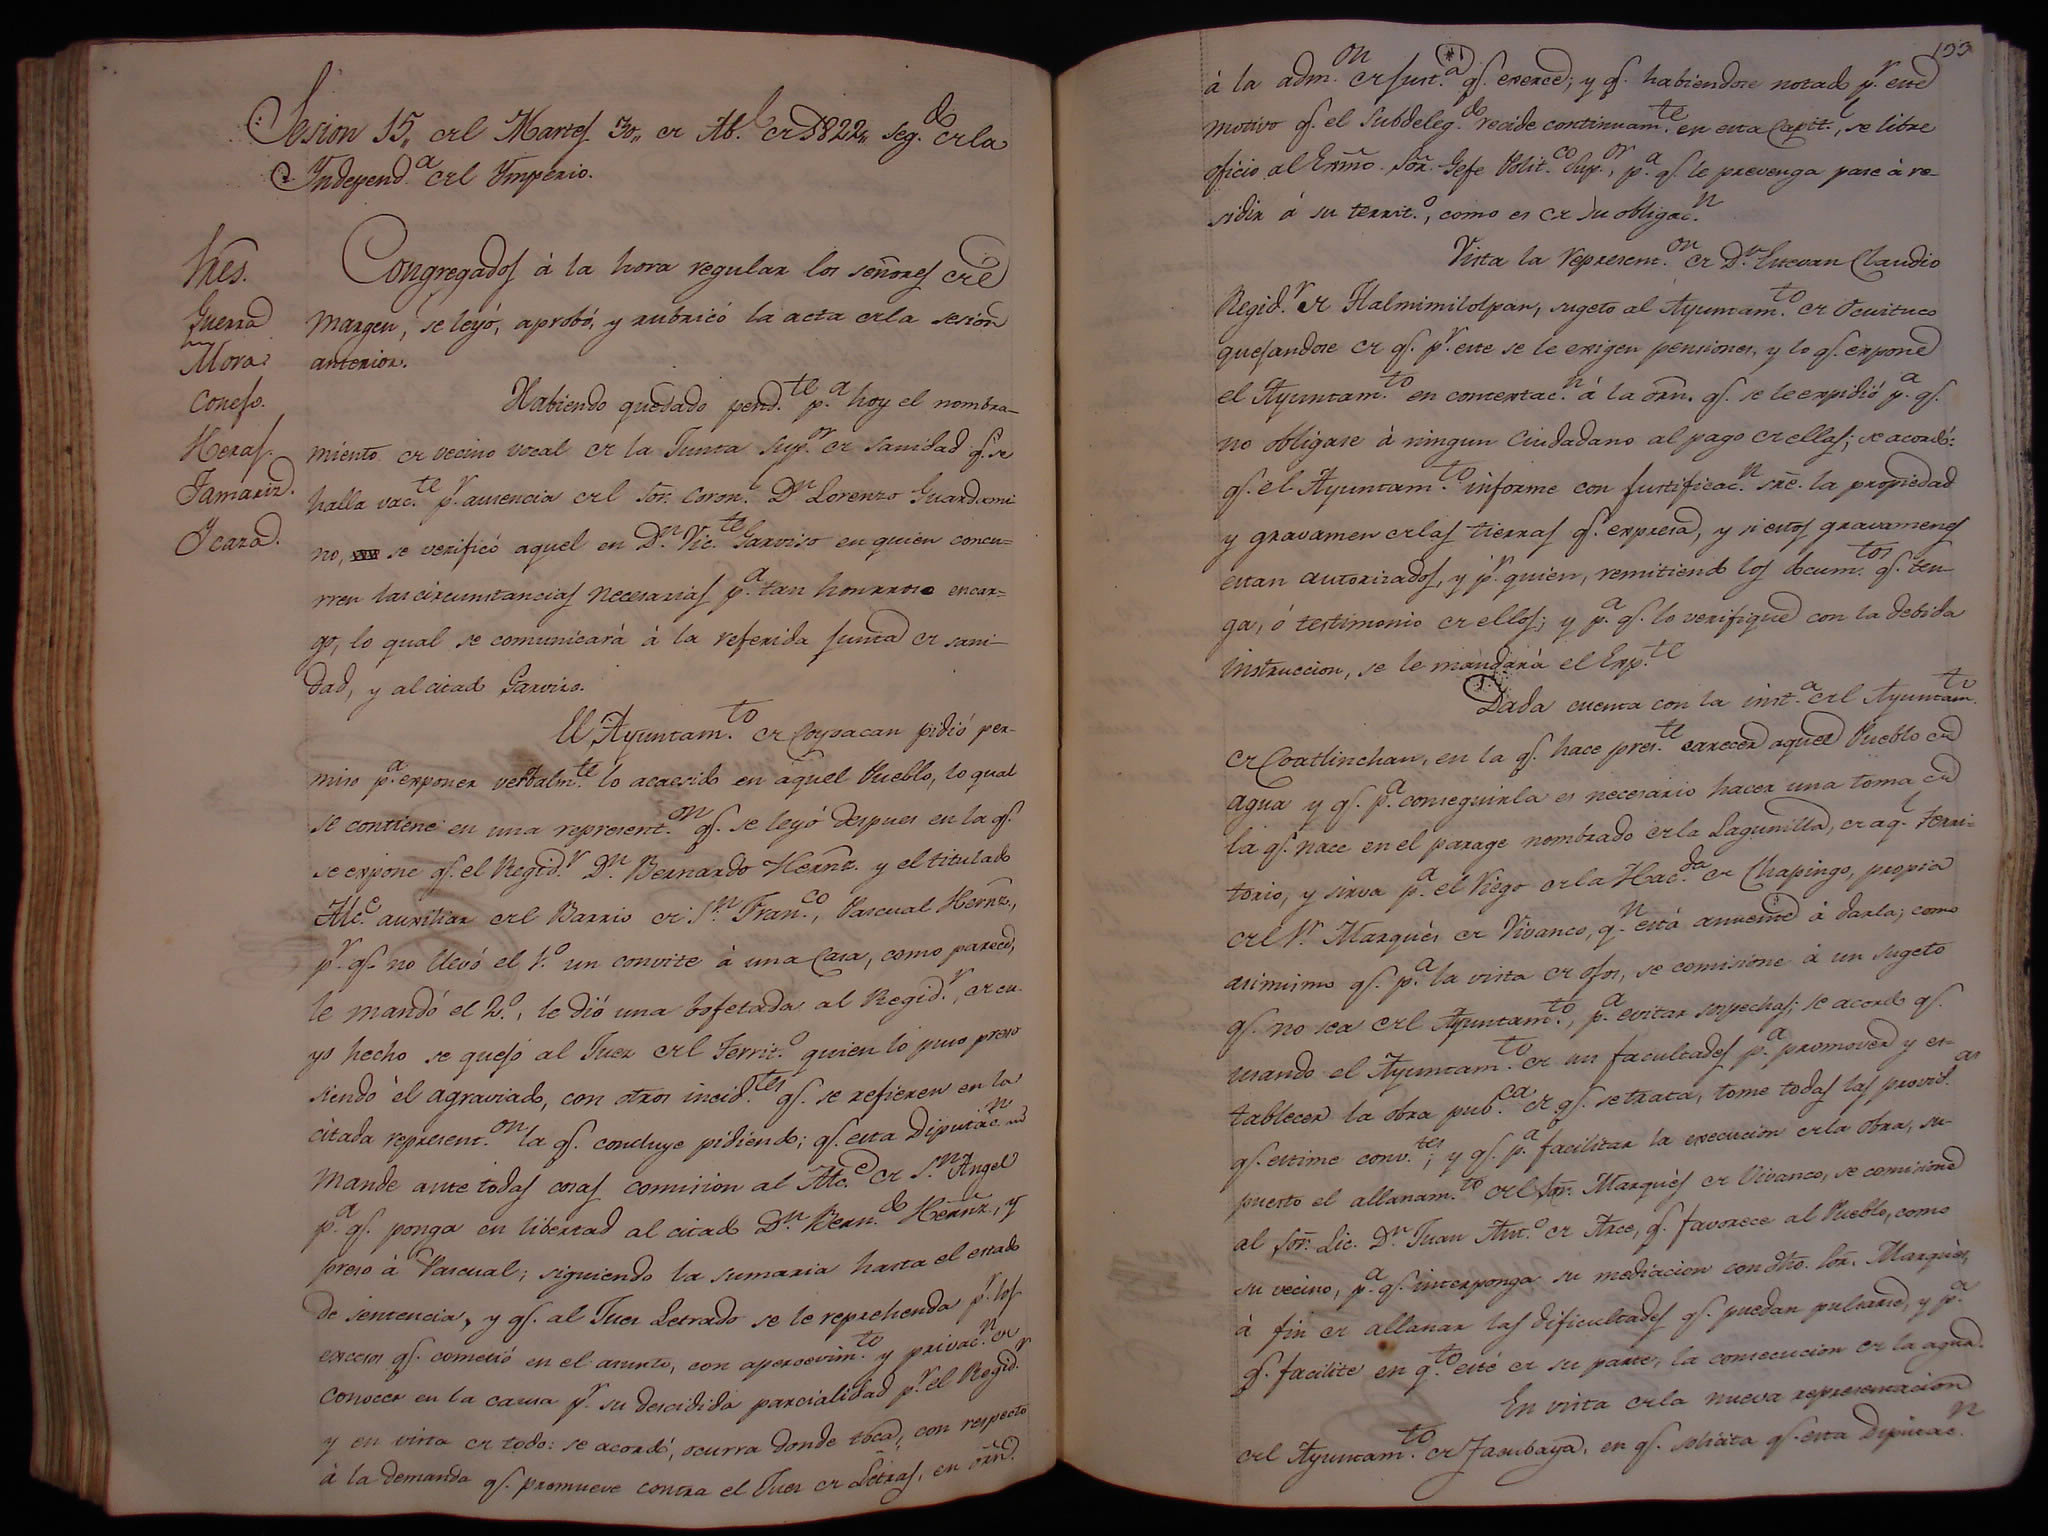 Sesion 15,, del Martes 30,, de Ab.l de 1822,, seg.do de la
Independ.a del Ymperio.
Sres.
Guerra
Mora
Conejo.
Heras.
Tamariz.
Ycaza.
Congregados á la hora regular los señores del
margen, se leyó, aprobó, y rubricó la acta de la sesion
anterior.
Habiendo quedado pend.te p.a hoy el nombra-
miento de vecino vocal de la Junta Sup.or de Sanidad q.e se
halla vac.te p.r ausencia del Sor. Coron.l D.n Lorenzo Guardami
no, se verificó aquel en D.n Vic.te Garviso en quien concu-
rren las circunstancias necesarias p.a tan honrroso encar-
go, lo qual se comunicará á la referida Junta de sani-
dad, y al citado Garviso.
El Ayuntam.to de Coyoacan pidió per-
miso p.a exponer verbalm.te lo acaecido en aquel Pueblo, lo qual
se contiene en una represent.on q.e se leyó despues en la q.e
se expone q.e el Regid.r D.n Bernardo Hernz. y el titulado
Alc.e auxiliar del Barrio de S.n Fran.co, Pascual Hernz.,
p.r q.e no llevó el 1.o un convite á una Casa, como parece,
le mandó el 2.o, le dió una bofetada al Regid.r, de cu-
yo hecho se quejó al Juez del Territ.o quien lo puso preso
siendo él agraviado, con otros incid.tes q.e se refieren en la
citada represent.on la q.e concluye pidiendo; q.e esta Diputac.n
mande ante todas cosas comision al Alc.e de S.n Angel
p.a q.e ponga en libertad al citado D.n Bern.do Hernz., y
preso á Pascual; siguiendo la sumaria hasta el estado
de sentencia, y q.e al Juez Letrado se le reprehenda p.r los
excesos q.e cometió en el asunto, con apercevim.to y privac.n de
conocer en la causa p.r su descidida parcialidad p.r el Regid.r
y en vista de todo: se acordó, ocurra donde toca, con respecto
á la demanda q.e promueve contra el Juez de Letras, en orn.
133
á la adm.on de Just.a q.e exerce; y q.e habiendose notado p.r este
motivo q.e el Subdeleg.do recide continuam.te en esta Capit.l, se libre
oficio al Exmo. Sor. Gefe Polit.co Sup.or, p.a q.e le prevenga pase á re-
sidir á su territ.o, como es de su obligac.n
Vista la represent.on de D.n Estevan Claudio
Regid.r de Tlalmimilolpan, sugeto al Ayuntam.to de Ocuituco
quejandose de q.e p.r este se le exigen pensiones, y lo q.e expone
el Ayuntam.to en contextac.n á la orn. q.e se le expidió p.a q.e
no obligase á ningun Ciudadano al pago de ellas; se acordó:
q.e el Ayuntam.to informe con justificac.n sre. la propiedad
y gravamen de las tierras q.e expresa, y si estos gravamenes
estan autorizados, y p.r quien, remitiendo los docum.tos q.e ten-
ga, ó testimonio de ellos; y p.a q.e lo verifique con la debida
instruccion, se le mandará el Exp.te
Dada cuenta con la inst.a del Ayuntam.to
de Coatlinchan, en la q.e hace pres.te carecer aquel Pueblo de
agua y q.e p.a conseguirla es necesario hacer una toma de
la q.e nace en el parage nombrado de la Lagunilla, de aq.l terri-
torio, y sirva p.a el Riego de la Hac.da de Chapingo, propia
del S.r Marqués de Vivanco, q.n está anuente á darla; como
asimismo q.e p.a la vista de ojos, se comisione á un sugeto
q.e no sea del Ayuntam.to, p.a evitar sospechas; se acordó q.e
usando el Ayuntam.to de sus facultades p.a promover y es-
tablecer la obra pub.ca de q.e se trata, tome todas las provid.as
q.e estime conv.tes; y q.e p.a facilitar la execucion de la obra, su-
puesto el allanam.to del Sor. Marqués de Vivanco, se comisione
al Sor. Lic. D.n Juan Ant.o de Arce, q.e favorece al Pueblo, como
su vecino, p.a q.e interponga su mediacion con dho. Sor. Marqués,
á fin de allanar las dificultades q.e puedan pulsarse, y p.a
q.e facilite en q.to esté de su parte, la consecucion de la agua.
En vista de la nueva representacion
del Ayuntam.to de Tacubaya, en q.e solicita q.e esta Diputac.n